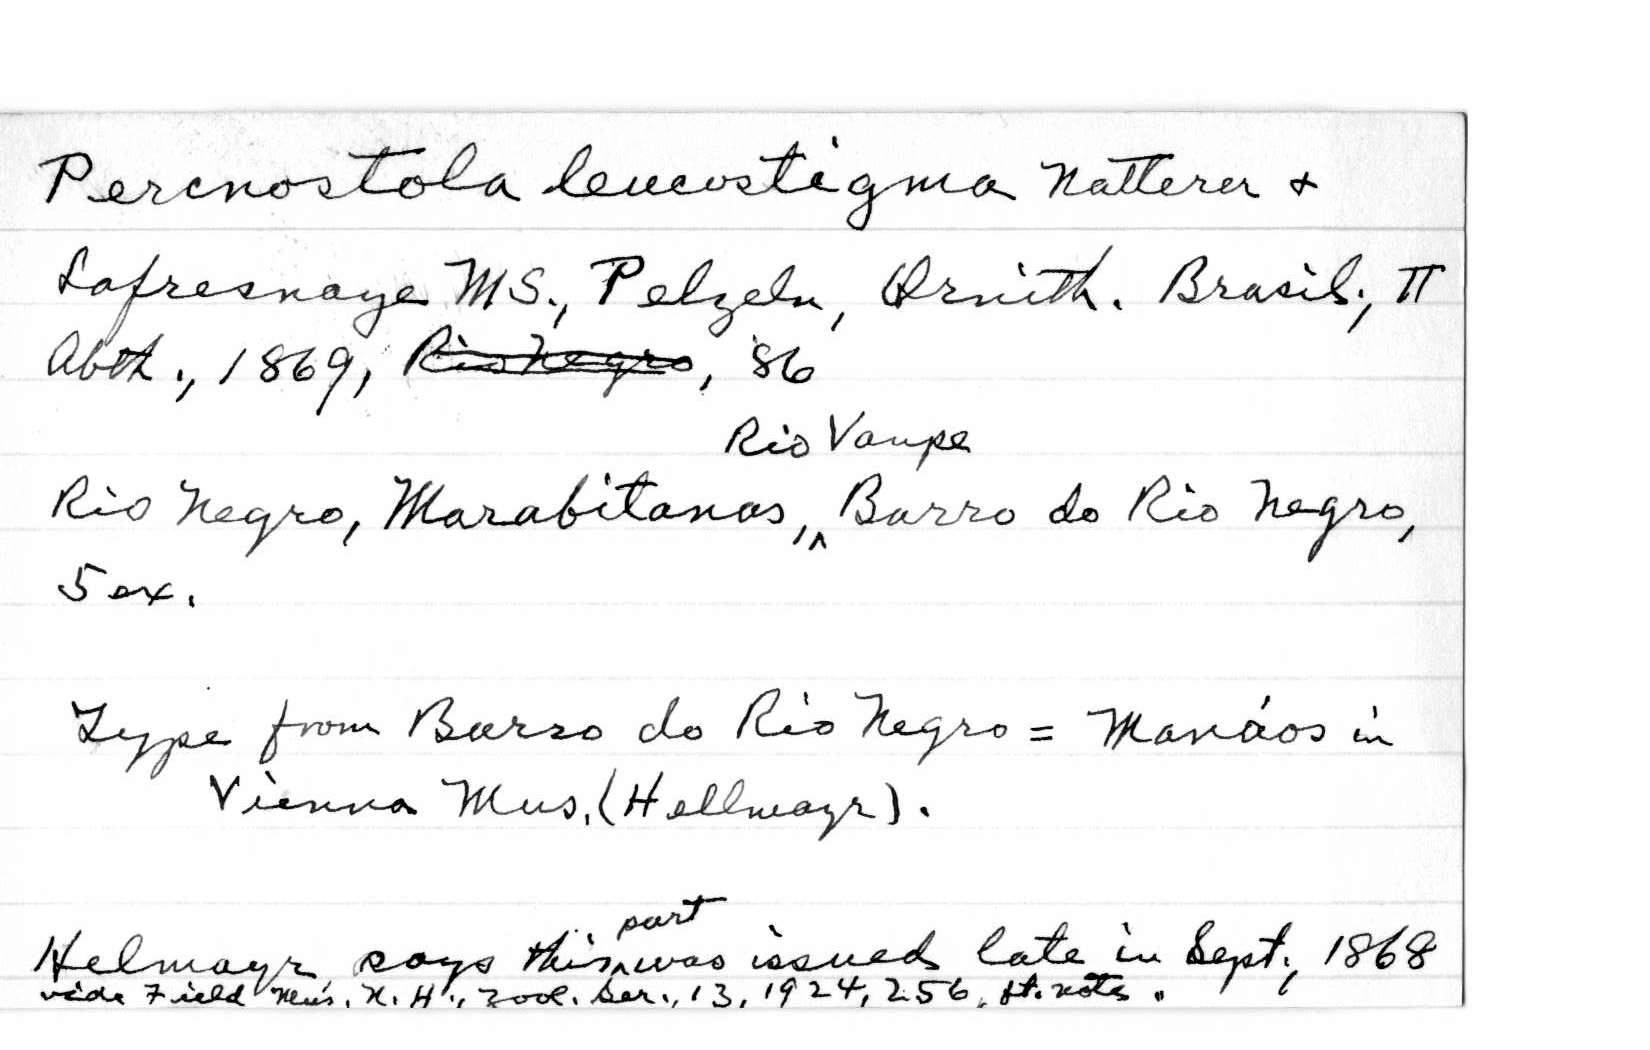 Percnostola leucostigma Natterer &
Lafresnaye MS., Pelzeln, Ornith. Brasil., II
Abth., 1869, Rio Negro, 86
Rio Vaupe
Rio Negro, Marabitanas, ^ Barro do Rio Negro,
5 ex.
Type from Barro do Rio Negro = Manáos in
Vienna Mus. (Hellmayr).
part
Helmayr says this ^ was issued late in Sept., 1868
vide Field Mus. N. H., Zool. Ser., 13, 1924, 256, ft. note.